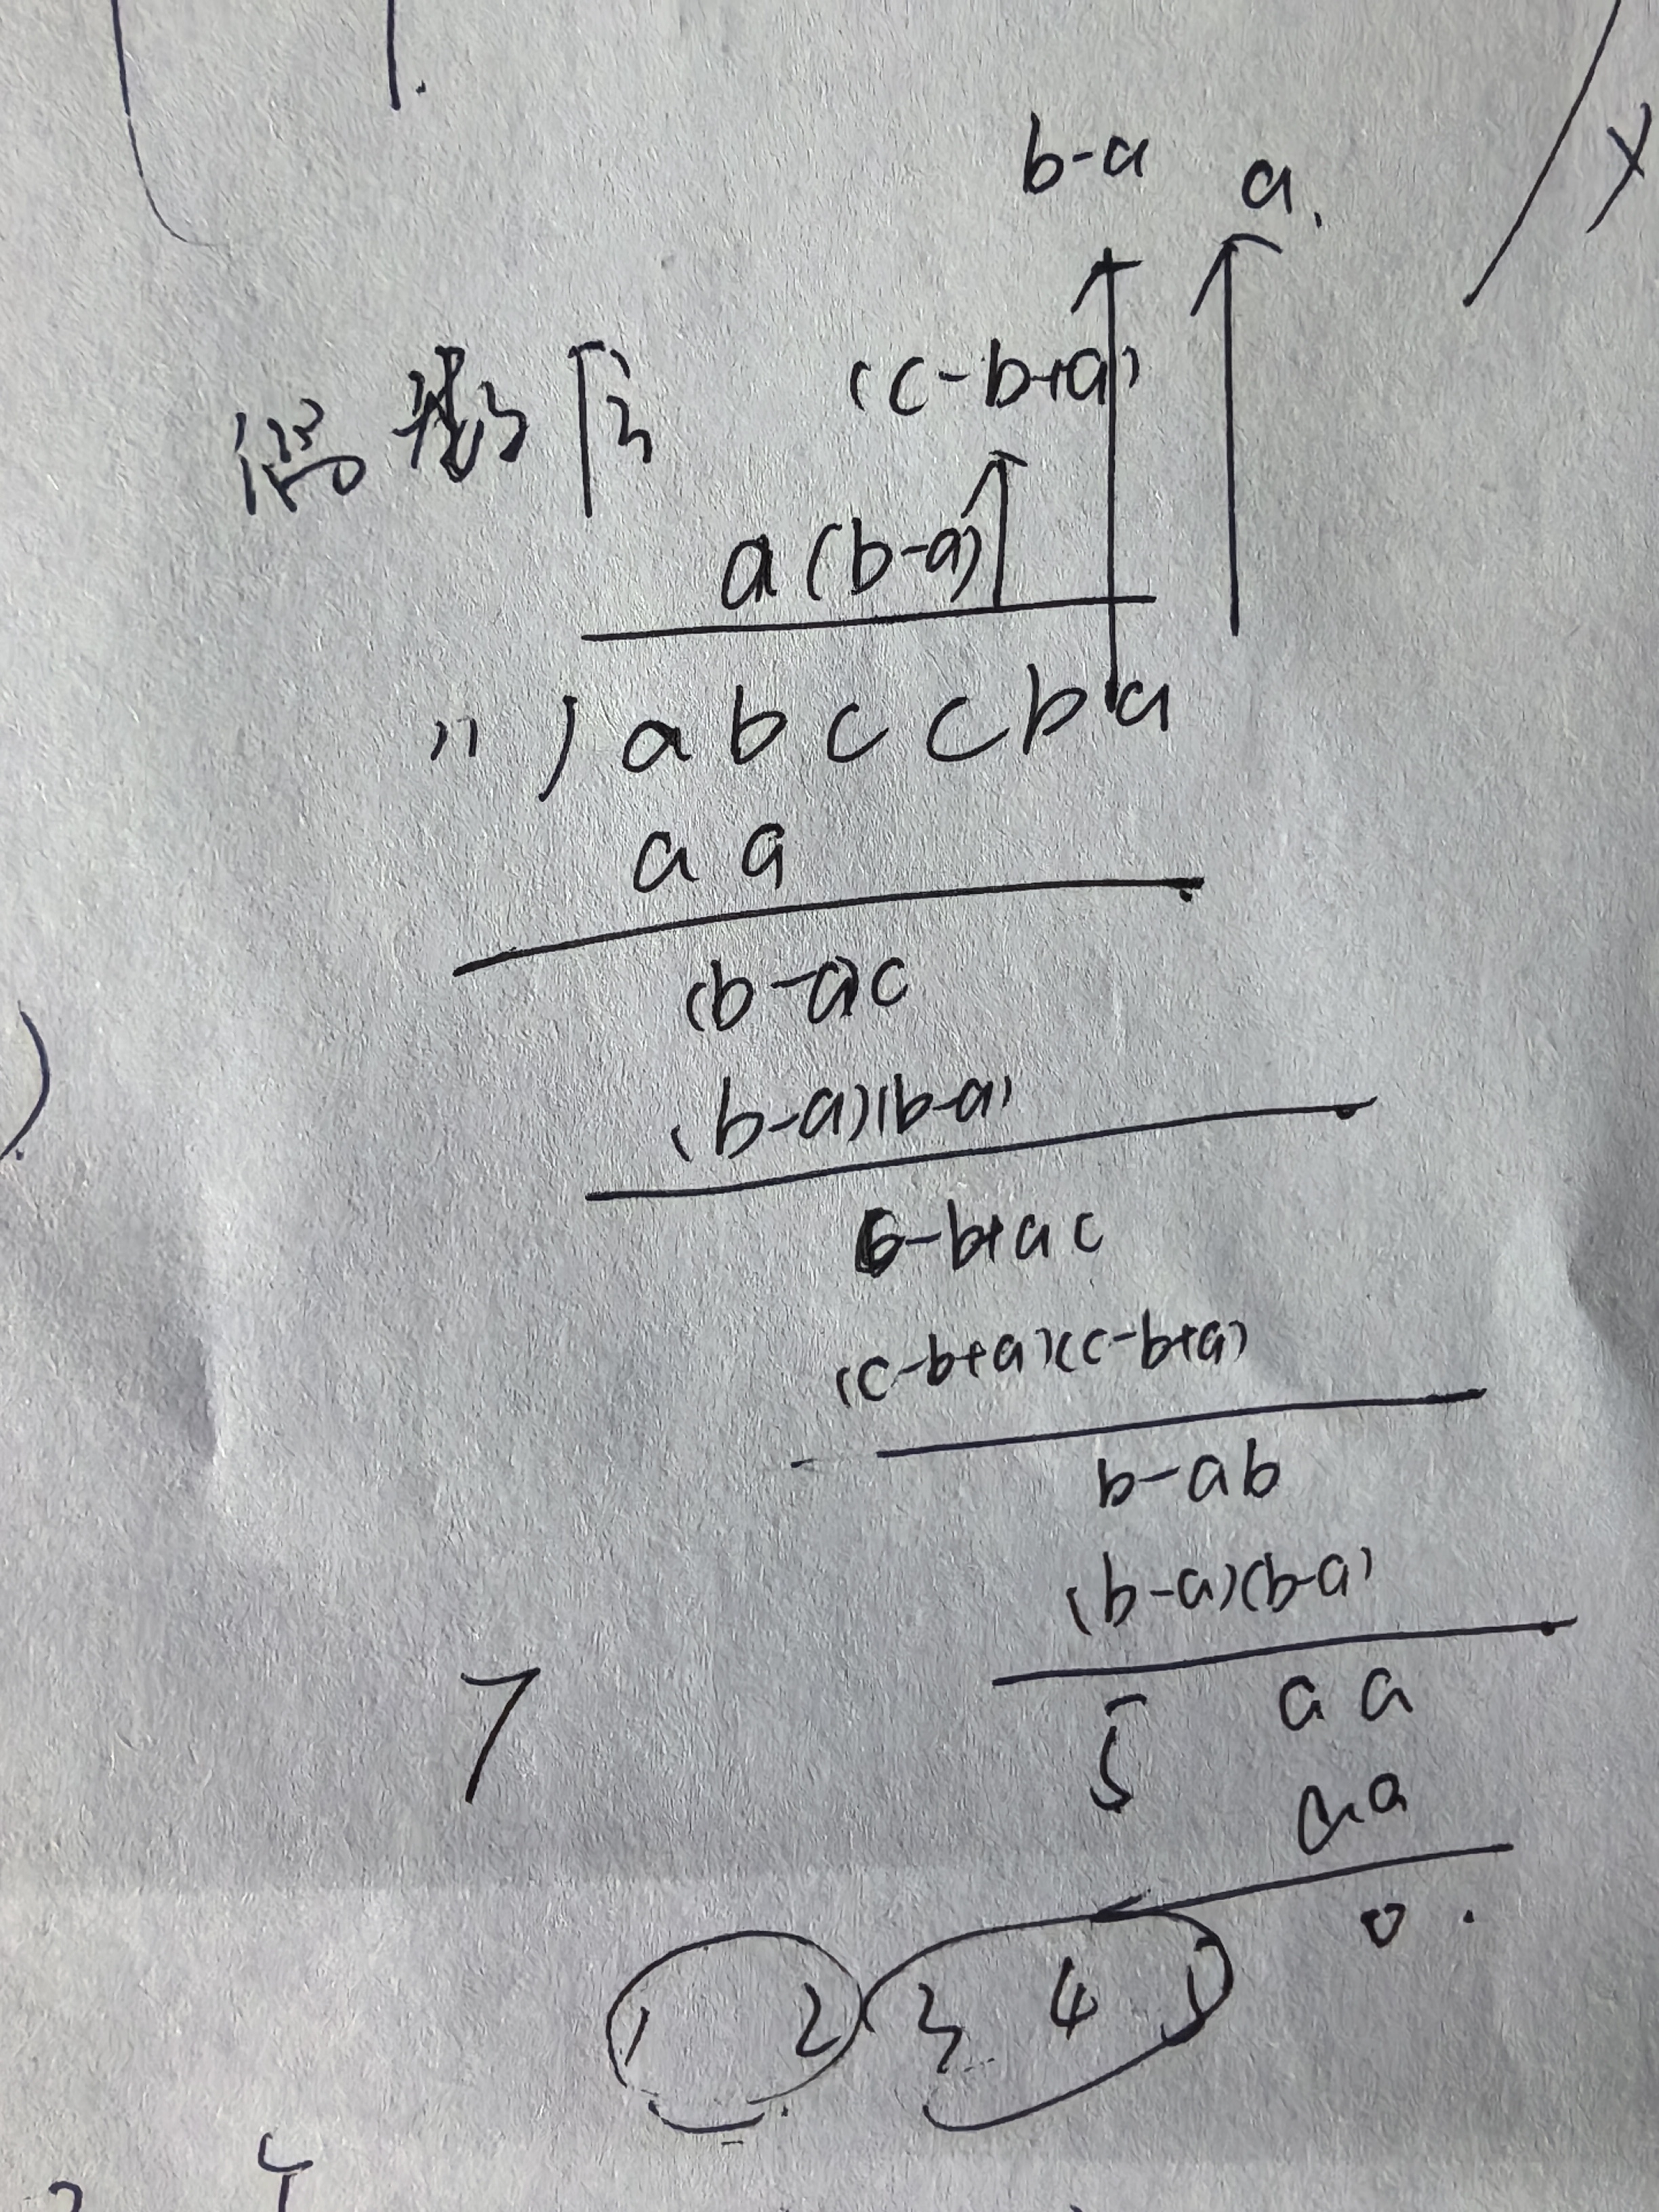 b-a a.
(c-b+a)
偶数后
a(b-a)
11)abccba
aa
(b-a)c
(b-a)(b-a)
c-b+a c
(c-b+a)(c-b+a)
b-a b
(b-a)(b-a)
7 5 a a
a a
0.
1 2 3 4